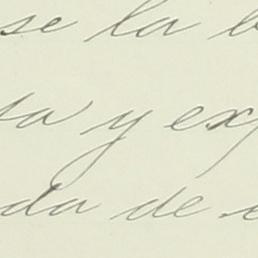 se la b
ta y exp
da de